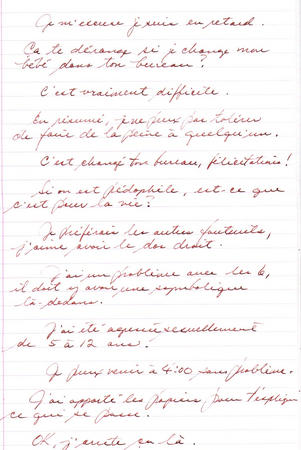 Je m'excuse je suis en retard.
Ça te dérange si je change mon
bébé dans ton bureau?
C'est vraiment difficile.
En résumé, je ne peux pas tolérer
de faire de la peine à quelqu'un.
C'est changé ton bureau, félicitations!
Si on est pédophile, est-ce que
c'est pour la vie?
Je préférais les autres fauteuils,
j'aime avoir le dos droit.
J'ai un problème avec les 6,
il doit y avoir une symbolique
là-dedans.
J'ai été agressée sexuellement
de 5 à 12 ans.
Je peux venir à 4:00 sans problème.
J'ai apporté les papiers, pour t'expliquer
ce qui se passe.
OK, j'arrête ça là.